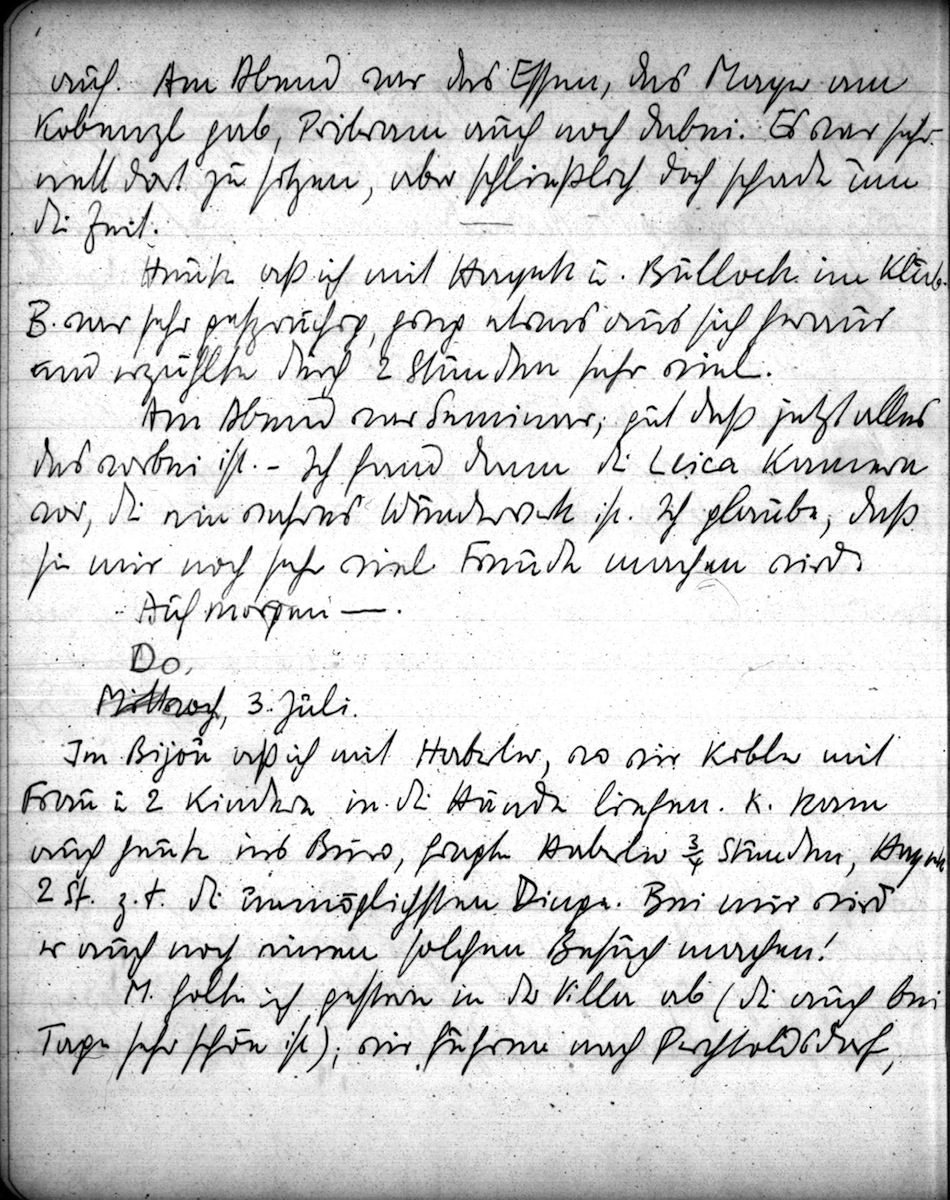 auch. Am Abend war das Essen, das Mayer am
Kobenzl gab, Pribram auch noch dabei. Es war sehr
nett dort zu sitzen, aber schließlich doch schade um
die Zeit.
Heute aß ich mit Hayek u. Bullock im Klub.
B. war sehr gesprächig, ging etwas aus sich heraus
und erzählte durch 2 Stunden sehr viel.
Am Abend war Seminar; gut daß jetzt alles
das vorbei ist. – Ich fand dann die Leica Kamera
vor, die ein wahres Wunderwerk ist. Ich glaube, daß
sie mir noch sehr viel Freude machen wird.
Auf morgen —.
Do.
Mittwoch, 3. Juli.
Im Bijou aß ich mit Haberler, wo wir Köbler mit
Frau u 2 Kindern in die Hände liefen. K. kam
auch heute ins Büro, fragte Haberler ¾ Stunden, Hayek
2 St. z. T. die unmöglichsten Dinge. Bei mir wird
er auch noch einen solchen Besuch machen!
M. holte ich gestern in der Villa ab (die auch bei
Tage sehr schön ist); wir fuhren nach Perchtoldsdorf,